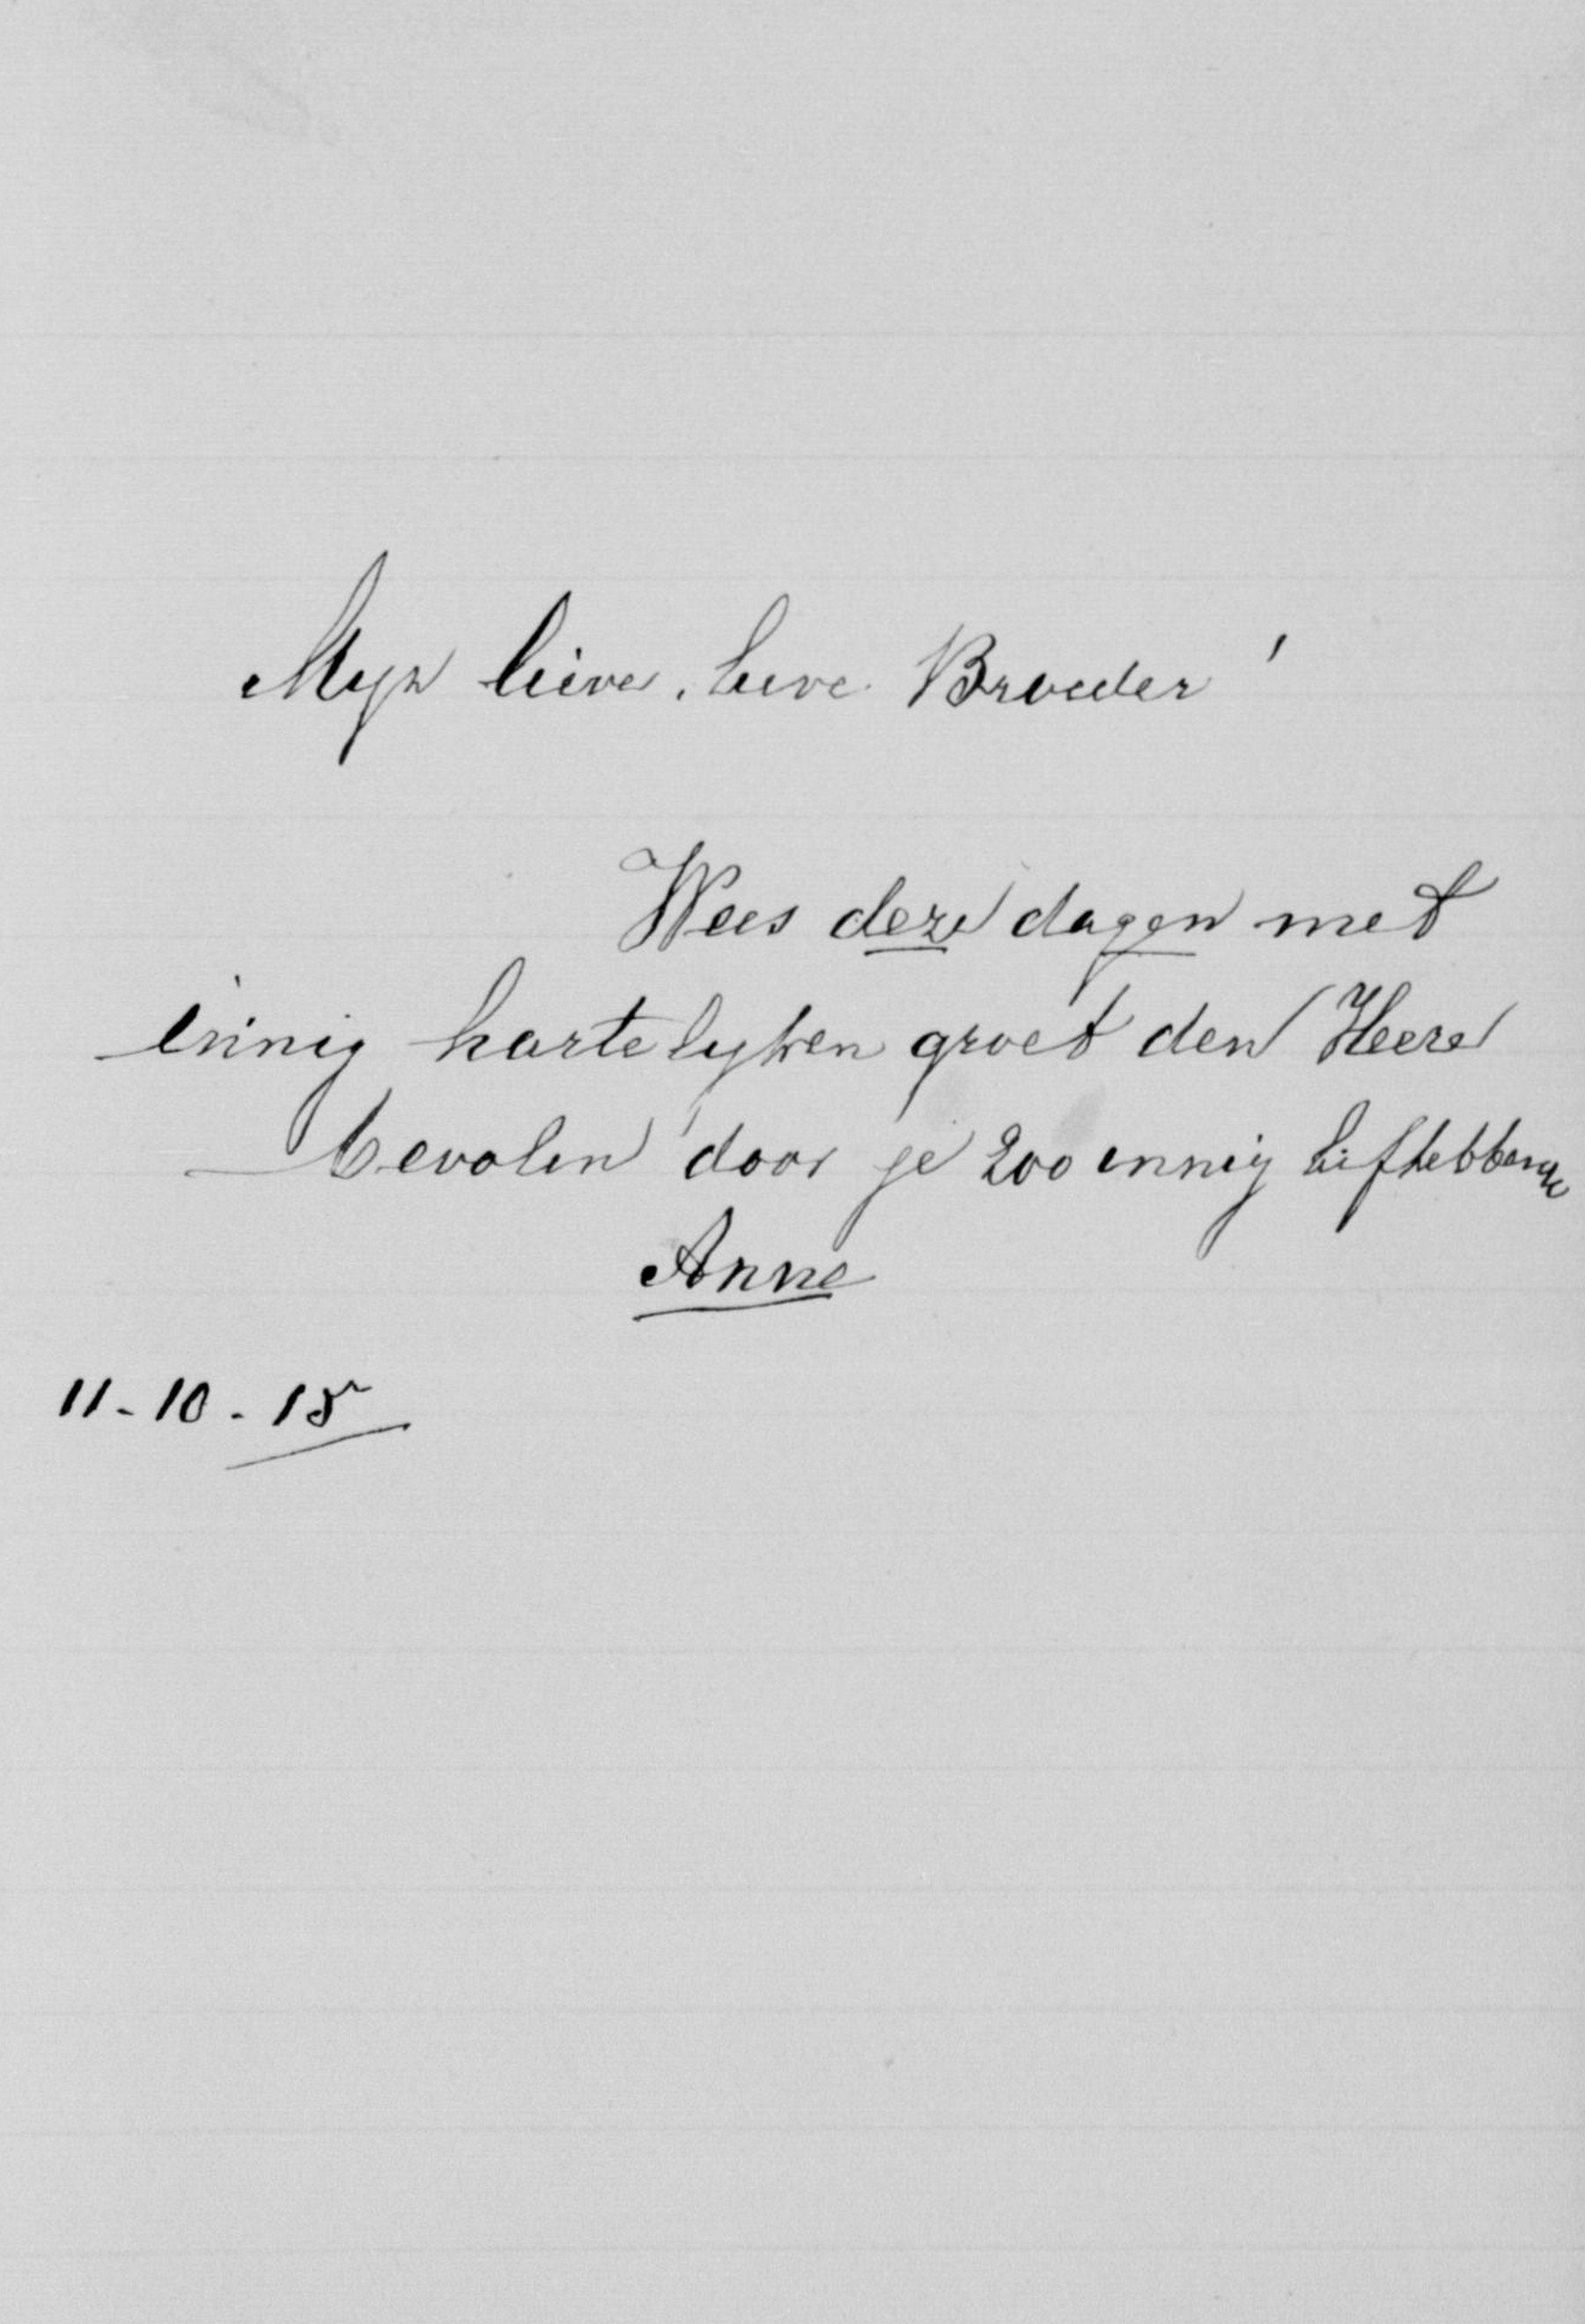 Myn lieve, lieve Broeder!
Wees deze dagen met
innig hartelyken groet den Heere
bevolen door je zoo innig liefhebbende
Anne
11-10-15